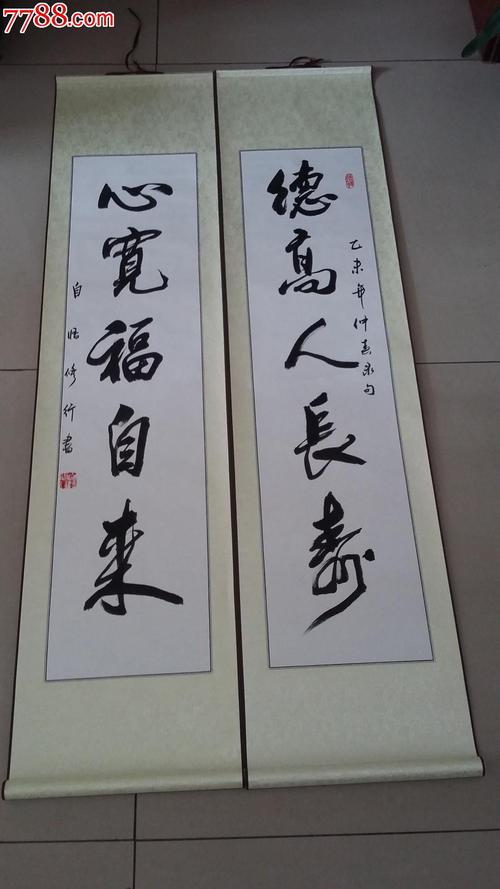 7788.com
德高人長壽
乙未年仲春录句
心寬福自来
自悟修行書